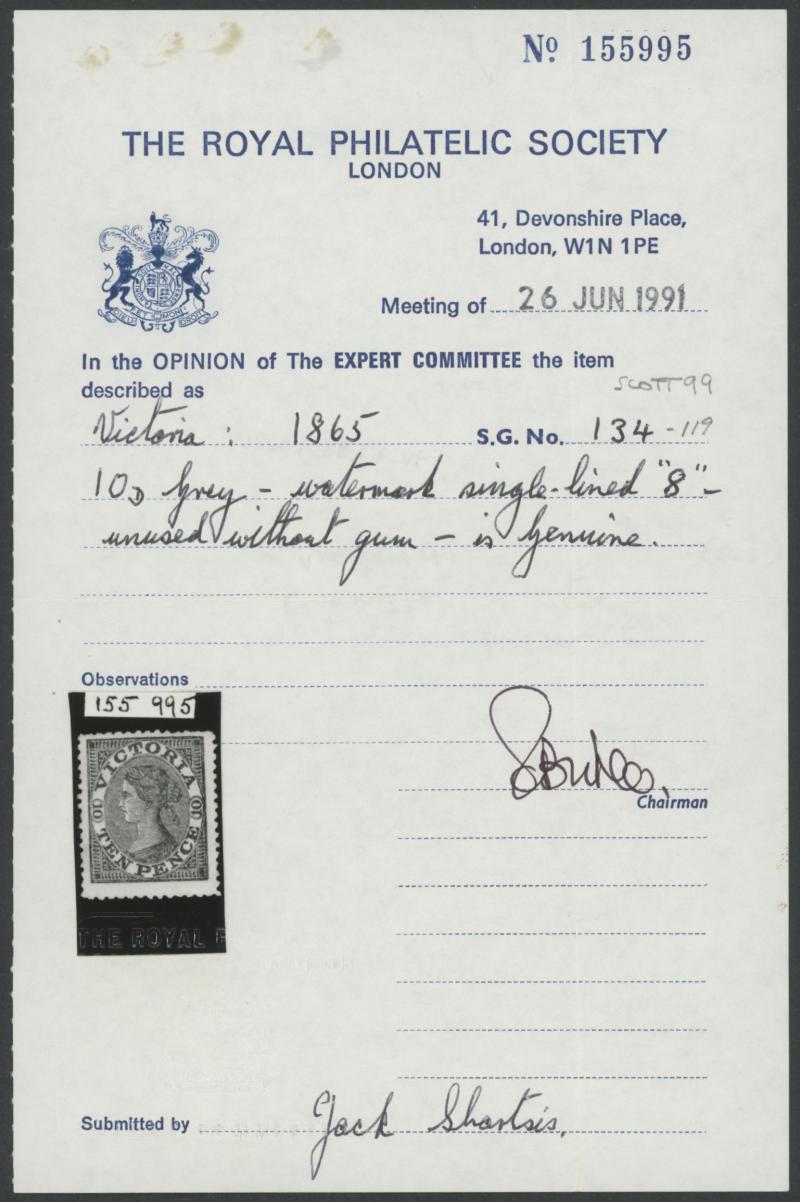 Nº 155995
THE ROYAL PHILATELIC SOCIETY
LONDON
41, Devonshire Place,
London, W1N 1PE
Meeting of 26 JUN 1991
In the OPINION of The EXPERT COMMITTEE the item
described as
SCOTT 99
Victoria: 1865 S.G. No. 134 - 119
10D Grey - watermark single-lined "8" -
unused without gum - is Genuine.
Observations
155 995
VICTORIA
10D 10D
TEN PENCE
THE ROYAL P
Chairman
Submitted by Jack Shartsis.